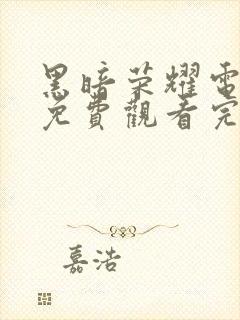 黑暗荣耀電
免費觀看完
嘉浩